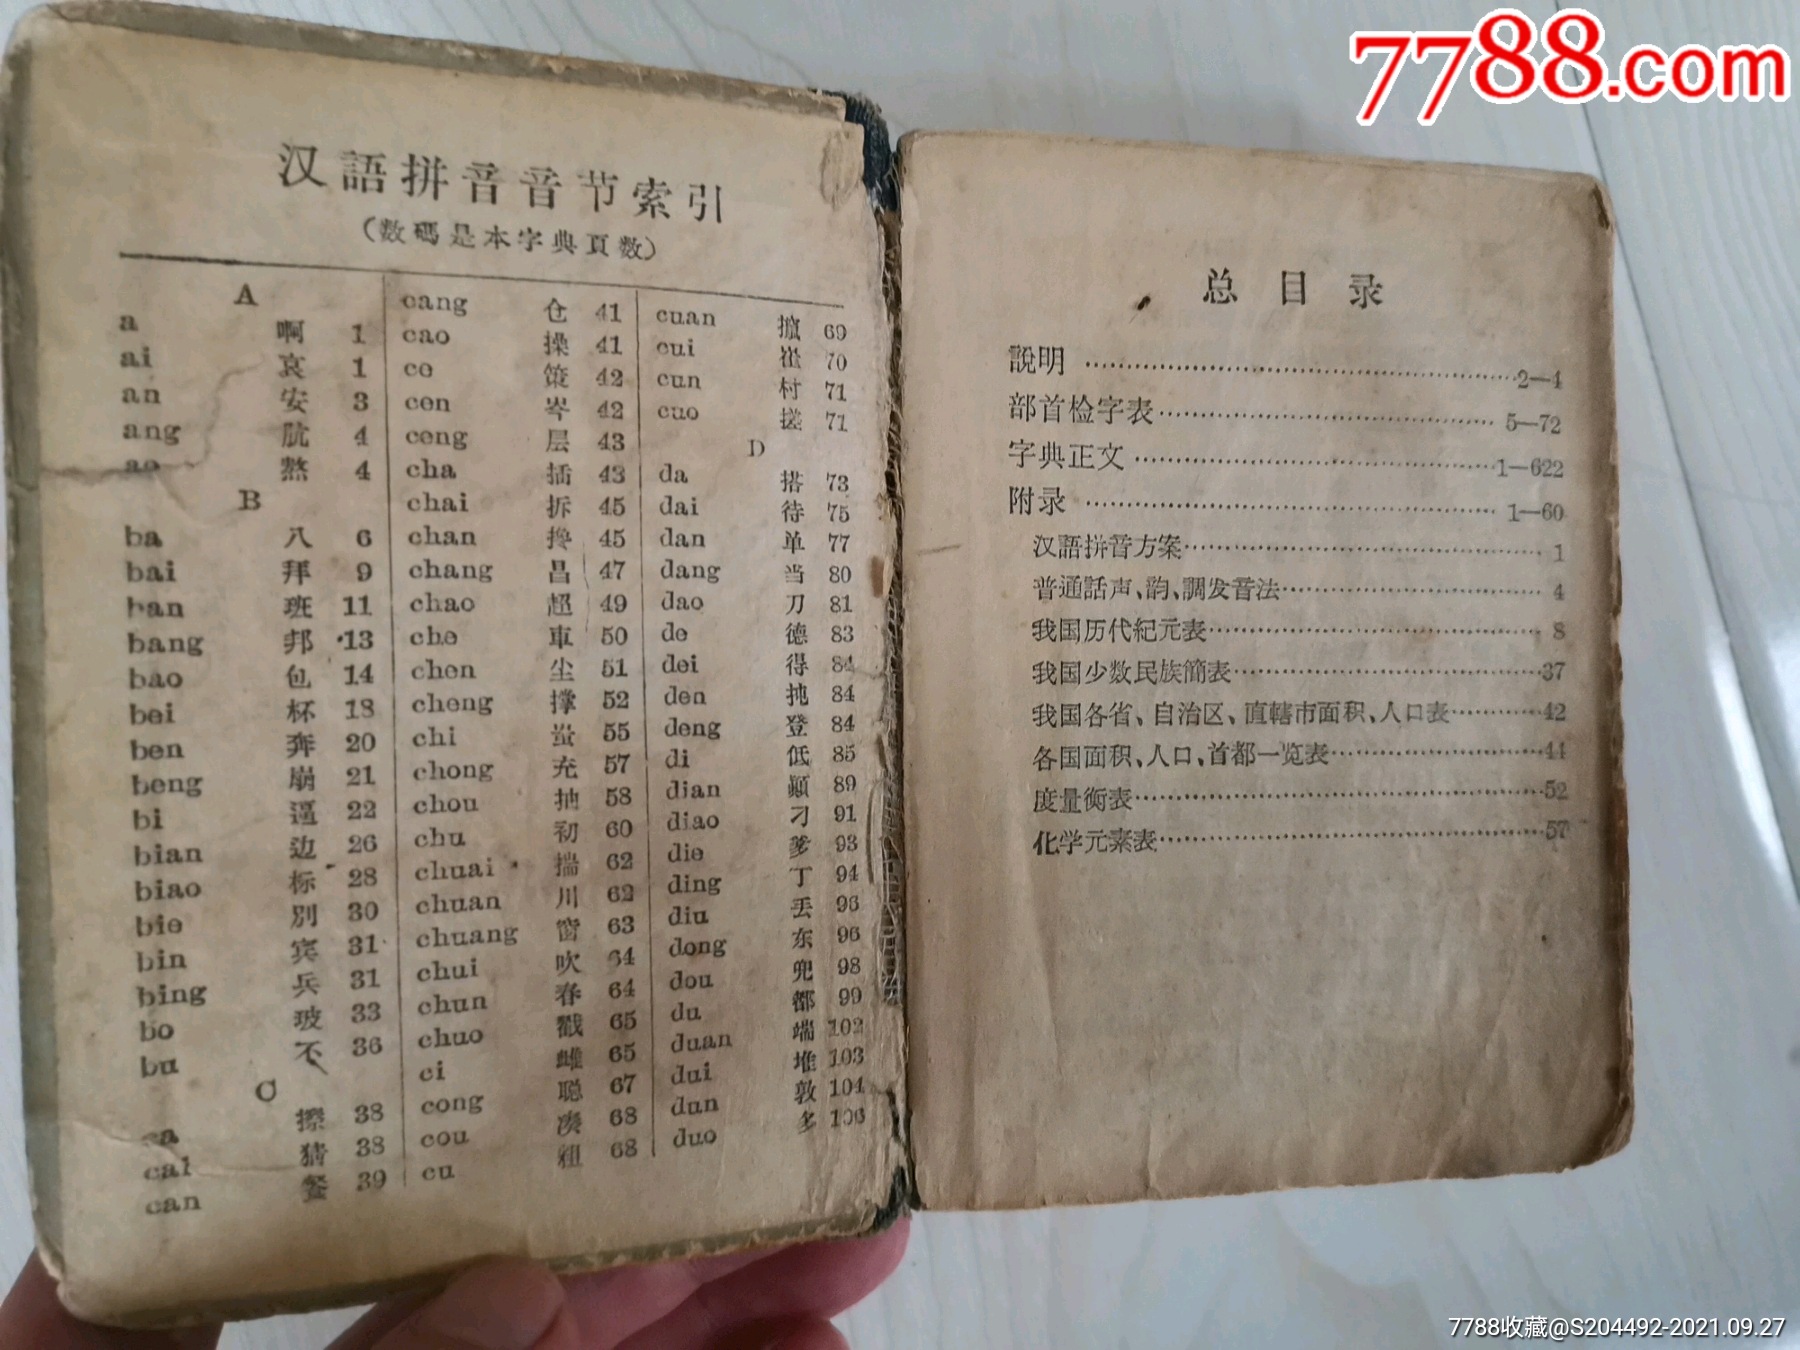 7788.com
汉語拼音音节索引
（数碼是本字典頁数）
A
a 啊 1
ai 哀 1
an 安 3
ang 肮 4
ao 熬 4
B
ba 八 6
bai 拜 9
ban 班 11
bang 邦 13
bao 包 14
bei 杯 18
ben 奔 20
beng 崩 21
bi 逼 22
bian 边 26
biao 标 28
bie 別 30
bin 宾 31
bing 兵 31
bo 玻 33
bu 不 36
C
ca 擦 38
cai 猜 38
can 餐 39
cang 仓 41
cao 操 41
ce 策 42
cen 岑 42
ceng 层 43
cha 插 43
chai 拆 45
chan 搀 45
chang 昌 47
chao 超 49
che 車 50
chen 尘 51
cheng 撑 52
chi 蚩 55
chong 充 57
chou 抽 58
chu 初 60
chuai 揣 62
chuan 川 62
chuang 窗 63
chui 吹 64
chun 春 64
chuo 戳 65
ci 雌 65
cong 聪 67
cou 凑 68
cu 粗 68
cuan 攛 69
cui 崔 70
cun 村 71
cuo 搓 71
D
da 搭 73
dai 待 75
dan 单 77
dang 当 80
dao 刀 81
de 德 83
dei 得 84
den 扽 84
deng 登 84
di 低 85
dian 顚 89
diao 刁 91
die 爹 93
ding 丁 94
diu 丢 96
dong 东 96
dou 兜 98
du 都 99
duan 端 102
dui 堆 103
dun 敦 104
duo 多 106
总目录
說明……2—4
部首检字表……5—72
字典正文……1—622
附录……1—60
汉語拼音方案……1
普通話声、韵、調发音法……4
我国历代紀元表……8
我国少数民族簡表……37
我国各省、自治区、直轄市面积、人口表……42
各国面积、人口、首都一览表……44
度量衡表……52
化学元素表……57
7788收藏@S204492-2021.09.27